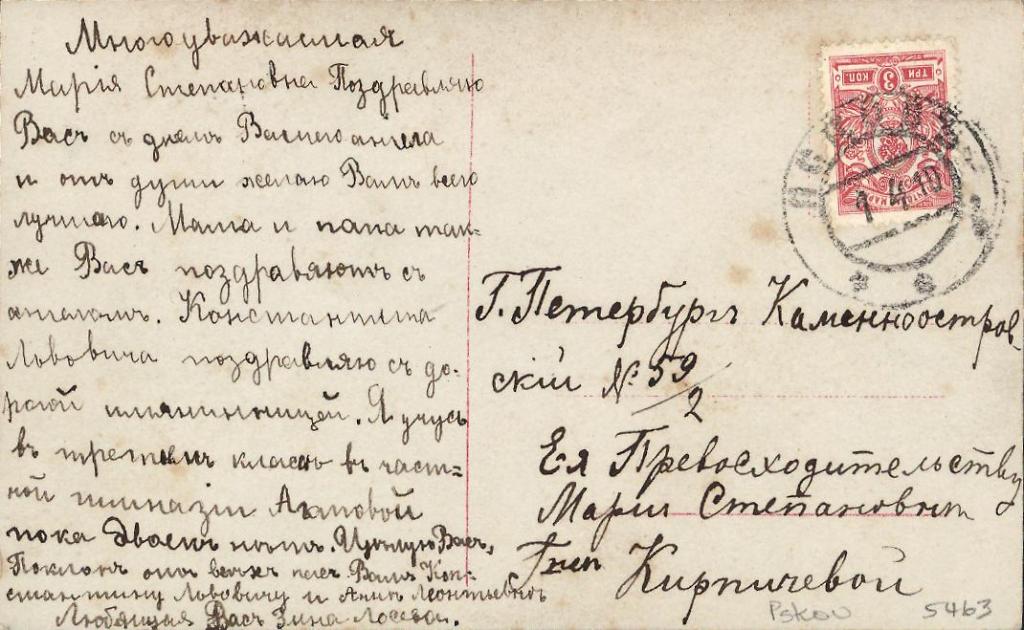 Многоуважаемая
Марія Степановна Поздравляю
Васъ съ днемъ Вашего ангела
и отъ души желаю Вамъ всего
лучшаго. Мама и папа так-
же Васъ поздравяютъ съ
ангеломъ. Константина
Львовича поздравляю съ до-
рогой имянинницей. Я учусь
въ третьемъ классѣ въ част-
ной гимназіи Агаповой
пока двоекъ нѣтъ. Цѣлую Васъ,
Поклонъ отъ всѣхъ насъ Вамъ Кон-
стантину Львовичу и Аннѣ Леонтьевнѣ
Любящая Васъ Зина Лосева.
ТРИ 3 КОП.
ПСКОВЪ
1 4 10
Г. Петербургъ Каменноостров
скій № 59/2
Ея Превосходительству
Маріи Степановнѣ
Г-жѣ Кирпичевой
Pskov 5463